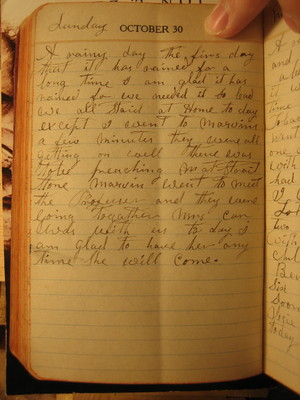 Sunday
OCTOBER 30
A rainy day the firs day
that it has rained for a
long time I am glad it has
rained for we needed it so bad
we all staid at Home to day
except I went to Marvins
a few minutes they were all
getting on well there was
to be preaching at
stone Marvin went to meet
the Professer and they were
going togather Mrs
lives with us to day I
am Glad to have her any
time she will come.